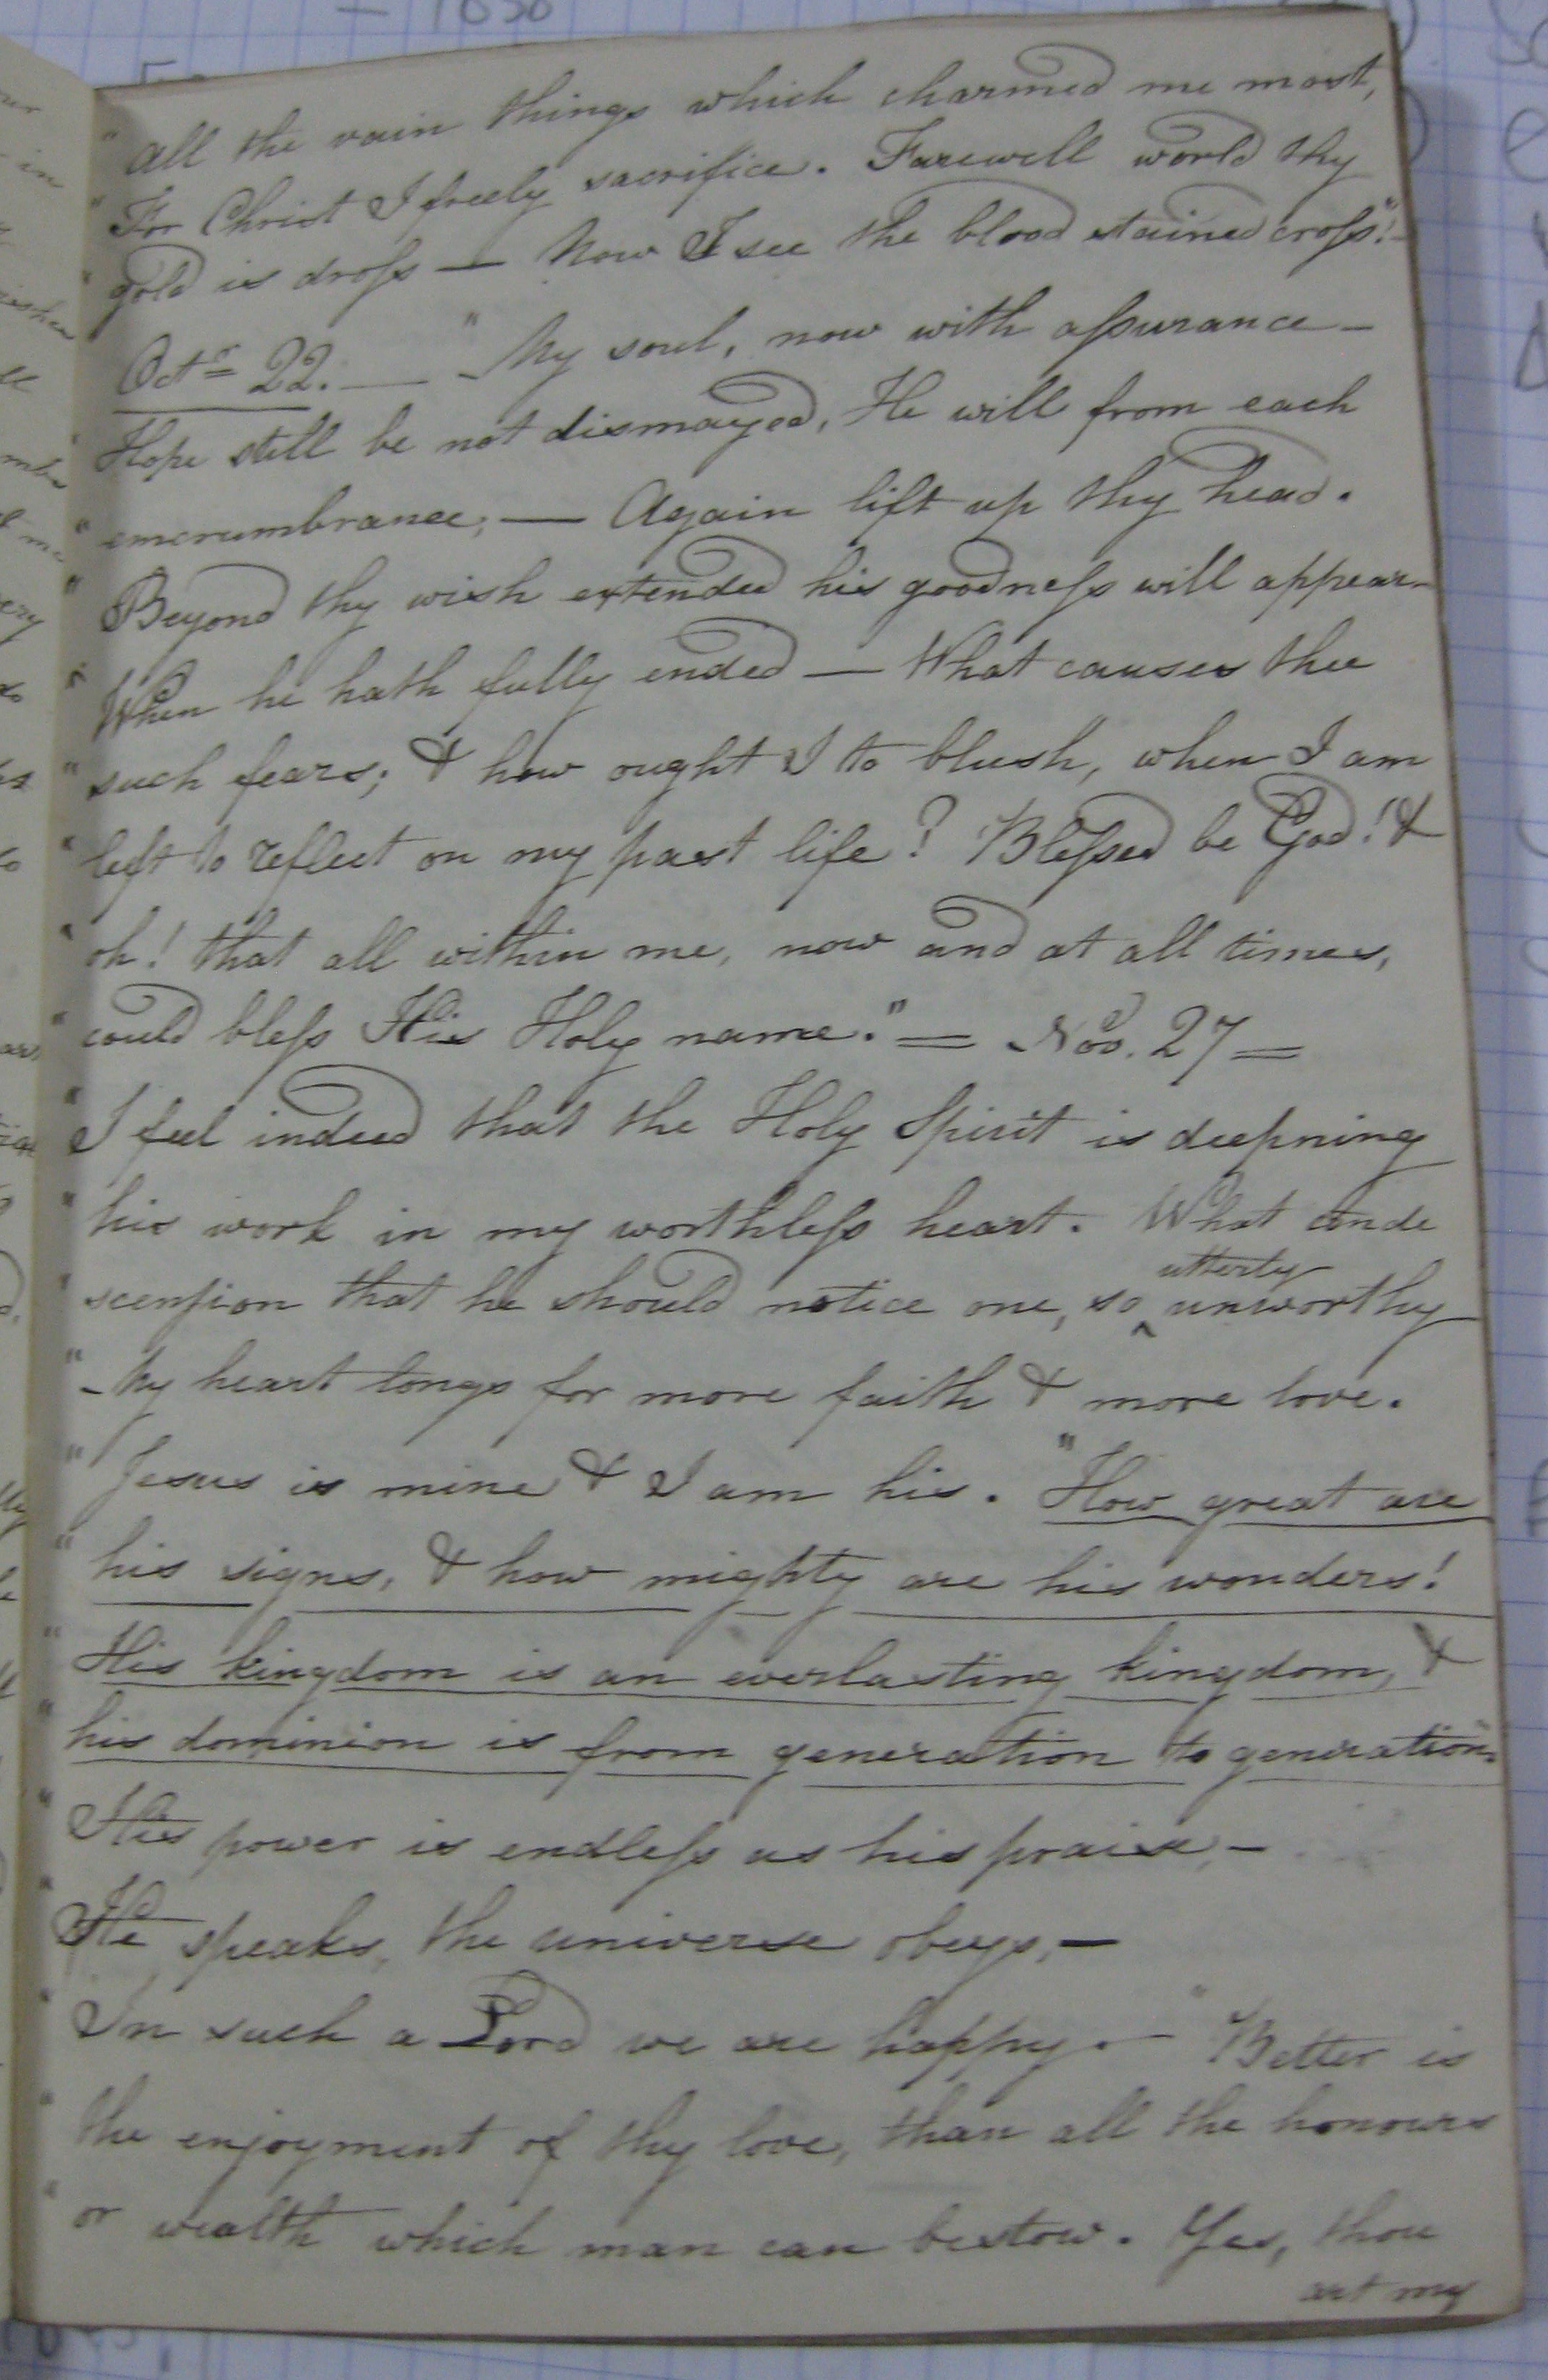 = 1050
" all the vain things which charmed me most,
" For Christ I freely sacrifice. Farewell world thy
" gold is droſs — Now I see the blood stained croſs!"–
Octr 22. — " My soul, now with aſsurance –
Hope still be not dismayed, He will from each
" emcrumbrance, — Again lift up thy head.
" Beyond thy wish extended his goodneſs will appear –
" When he hath fully ended — What causes thee
" such fears; & how ought I to blush, when I am
" left to reflect on my past life? Bleſsed be God! &
" oh! that all within me, now and at all times,
" could bleſs His Holy name." = Nov. 27 =
" I feel indeed that the Holy Spirit is deepning
" his work in my worthleſs heart. What conde
utterly
" scenſion that he should notice one, so ^ unworthy
" My heart longs for more faith & more love.
" Jesus is mine & I am his. "How great are
" his signs, & how mighty are his wonders!
" His kingdom is an everlasting kingdom, &
" his dominion is from generation to generation."
" His power is endleſs as his praise, –
" He speaks, the universe obeys, –
" In such a Lord we are happy. – " Better is
" the enjoyment of thy love, than all the honours
" or wealth which man can bestow. Yes, thou
art my